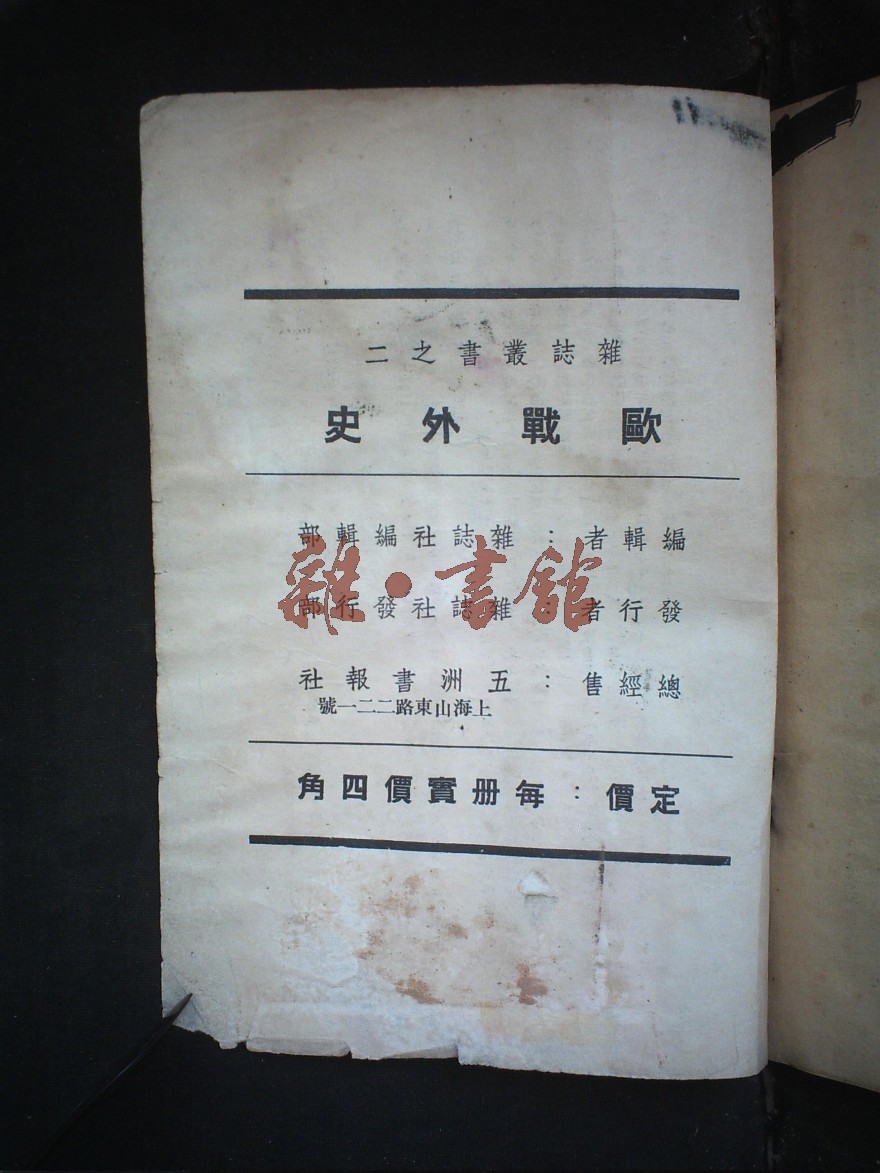 雜誌叢書之二
歐戰外史
編輯者：雜誌社編輯部
發行者：雜誌社發行部
總經售：五洲書報社
上海山東路二二一號
定價：每册實價四角
雜·書館